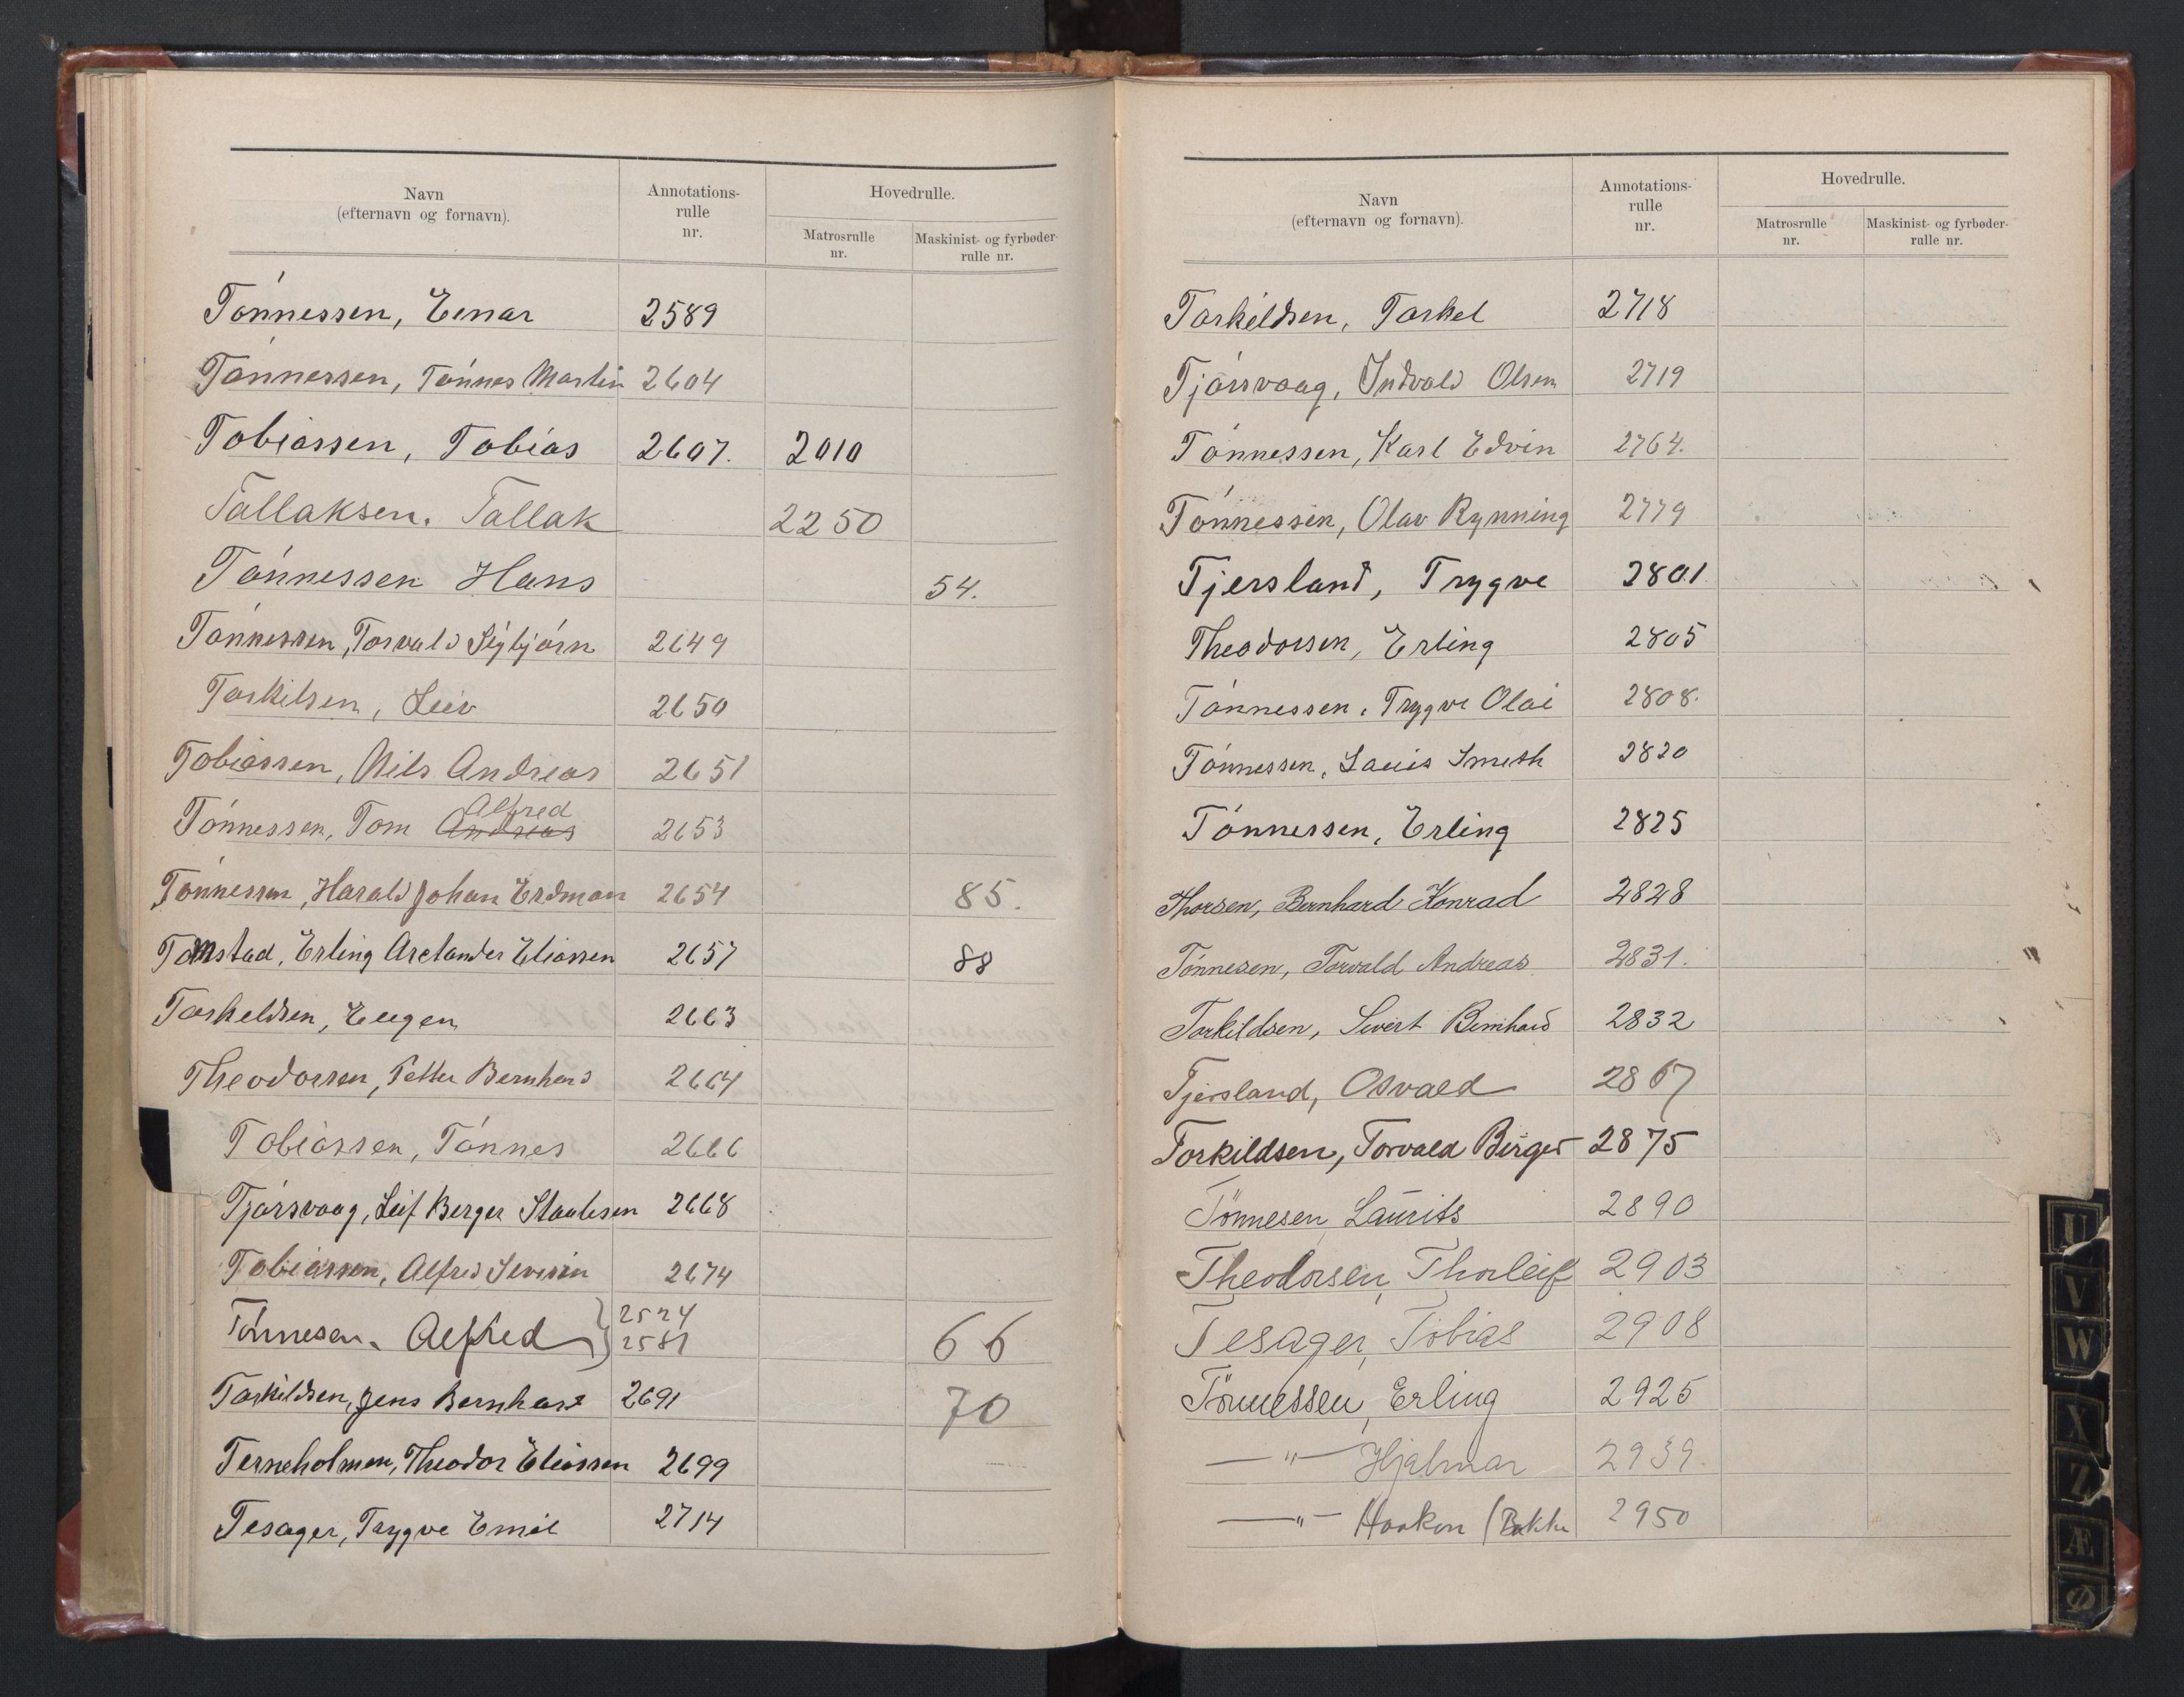 Navn
(efternavn og fornavn).
Annotations-
rulle
nr.
Hovedrulle.
Matrosrulle
nr.
Maskinist- og fyrbøder-
rulle nr.
Tónnessen, Einar 2589
Tónnessen, Tónnes Martin 2604
Tobiassen, Tobias 2607. 2010
Tallaksen. Tallak 2250
Tónnessen Hans 54.
Tónnessen, Torvald Sigbjórn 2649
Torkilsen, Leiv 2650
Tobiassen, Nils Andreas 2651
Alfred
Tónnessen, Tom Andreas 2653
Tónnessen, Harald Johan Erdman 2654 85.
Tomstad, Erling Arelander Eliassen 2657 88
Torkeldsen, Eugen 2663
Theodorsen, Petter Bernhard 2664
Tobiassen, Tónnes 2666
Tjórsvaag, Leif Berger Staalesen 2668
Tobiassen, Alfred Severin 2674
Tónnesen. Alfred } 2524
2581 66
Torkildsen, Jens Bernhard 2691 70
Terneholmen, Theodor Eliassen 2699
Tesager, Trygve Emil 2714
Navn
(efternavn og fornavn).
Annotations-
rulle
nr.
Hovedrulle.
Matrosrulle
nr.
Maskinist- og fyrbøder-
rulle nr.
Torkildsen, Torkel 2718
Tjórsvaag, Indvald Olsen 2719
Tónnessen, Karl Edvin 2764.
Tónnessen, Olav Rynning 2779
Tjersland, Trygve 2801
Theodorsen, Erling 2805
Tónnessen, Trygve Olai 2808.
Tónnessen, Louis Smith 2820
Tónnessen, Erling 2825
Thorsen, Bernhard Konrad 2828
Tónnesen, Torvald Andreas 2831.
Torkildsen, Sivert Bernhard 2832
Tjersland, Osvald 2867
Torkildsen, Torvald Birger 2875
Tönnesen, Laurits 2890
Theodorsen, Thorleif 2903
Tesager, Tobias 2908
Tönnessen, Erling 2925
— " — Hjalmar 2939.
— " — Haakon (Bakke 2950
U
V
W
X
Z
Æ
Ø